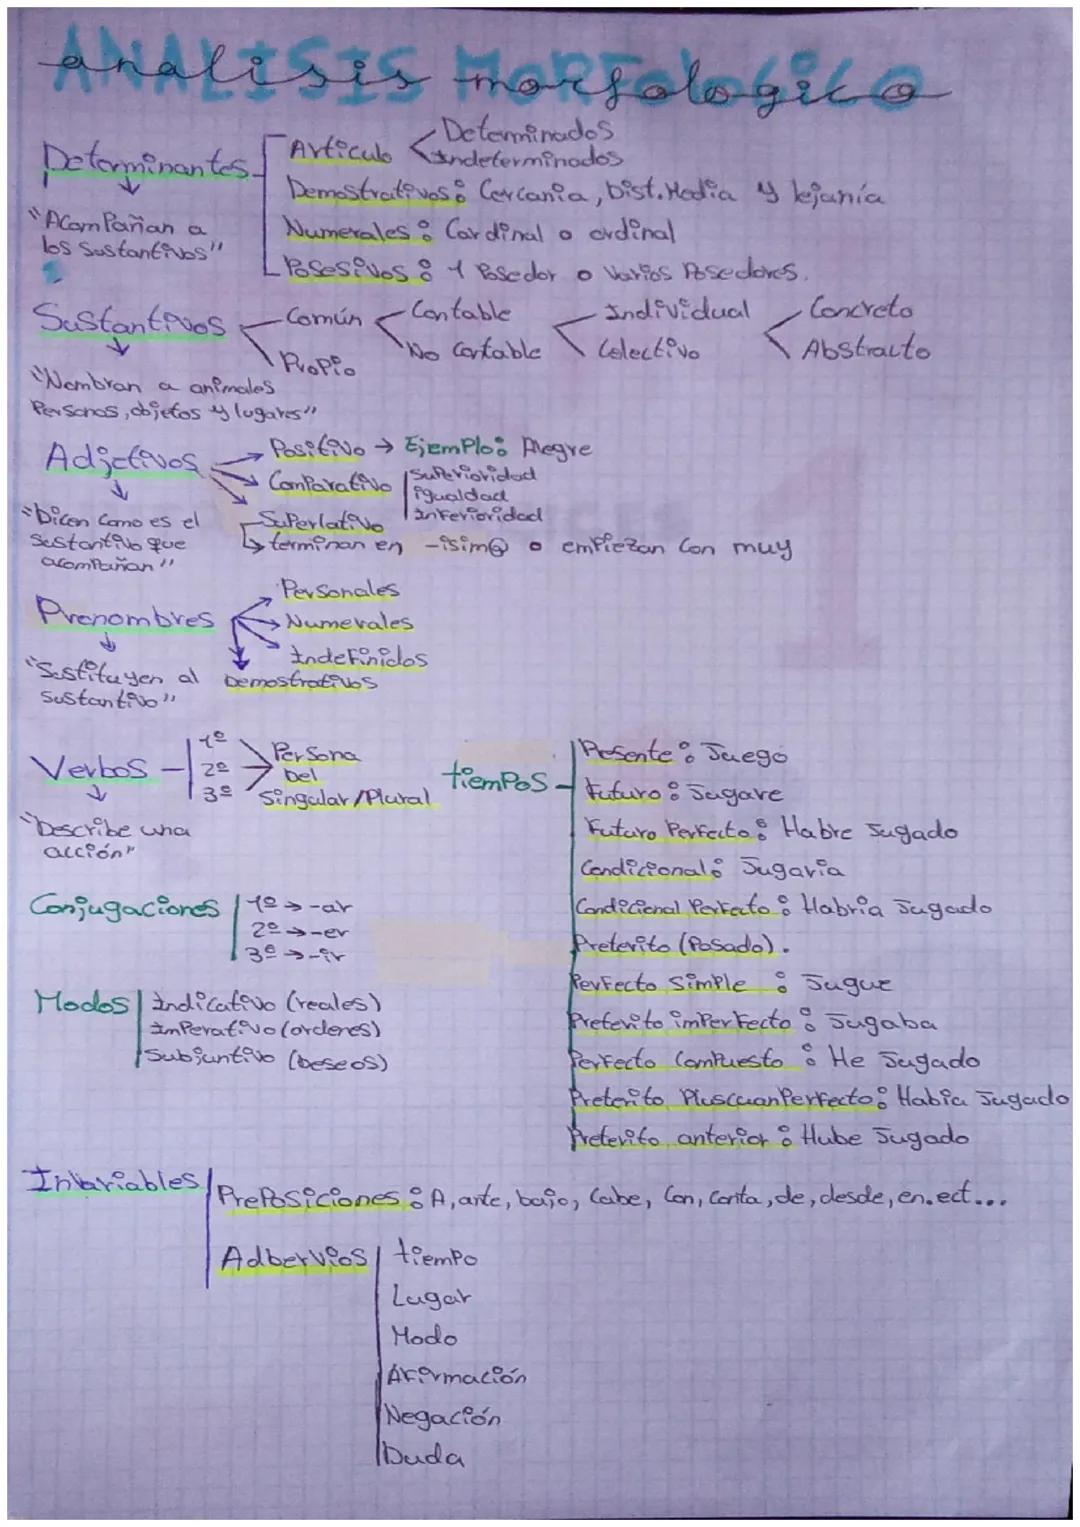 ANALISIS MORFOLOGICO
analisis morfologico
Determinantes
"Acompañan a
los sustantivos"
Articulo
Determinados
Indeterminados
Demostrativos: Cercania, Dist. Media y lejanía
Numerales: Cardinal o ordinal
Posesivos: 1 Posedor o varios Posedores.
Sustantivos
Común
Propio
Contable
No Contable
Individual
Colectivo
Concreto
Abstracto
"Nombran a animales
Personas, objetos y lugares"
Adjetivos
"Dicen como es el
sustantivo que
acompañan"
Positivo → Ejemplo: Alegre
Comparativo
Superioridad
igualdad
Inferioridad
Superlativo
terminan en -isim@ o empiezan con muy
Pronombres
"Sustituyen al
sustantivo"
Personales
Numerales
Indefinidos
Demostrativos
Verbos
"Describe una
acción"
1º
2º
3º
Persona
Del
Singular/Plural
tiempos
Presente: Juego
Futuro: Jugare
Futuro Perfecto: Habre Jugado
Condicional: Jugaria
Condicional Perfecto: Habria Jugado
Preterito (Pasado).
Perfecto Simple: Jugue
Preterito imperfecto: Jugaba
Perfecto Compuesto: He Jugado
Preterito Pluscuanperfecto: Habia Jugado
Preterito anterior: Hube Jugado
Conjugaciones
1º → -ar
2º → -er
3º → -ir
Modos
Indicativo (reales)
Imperativo (ordenes)
Subjuntivo (deseos)
Invariables
Preposiciones: A, ante, bajo, Cabe, Con, Contra, de, desde, en. ect...
Adbervios
tiempo
Lugar
Modo
Afirmación
Negación
Duda